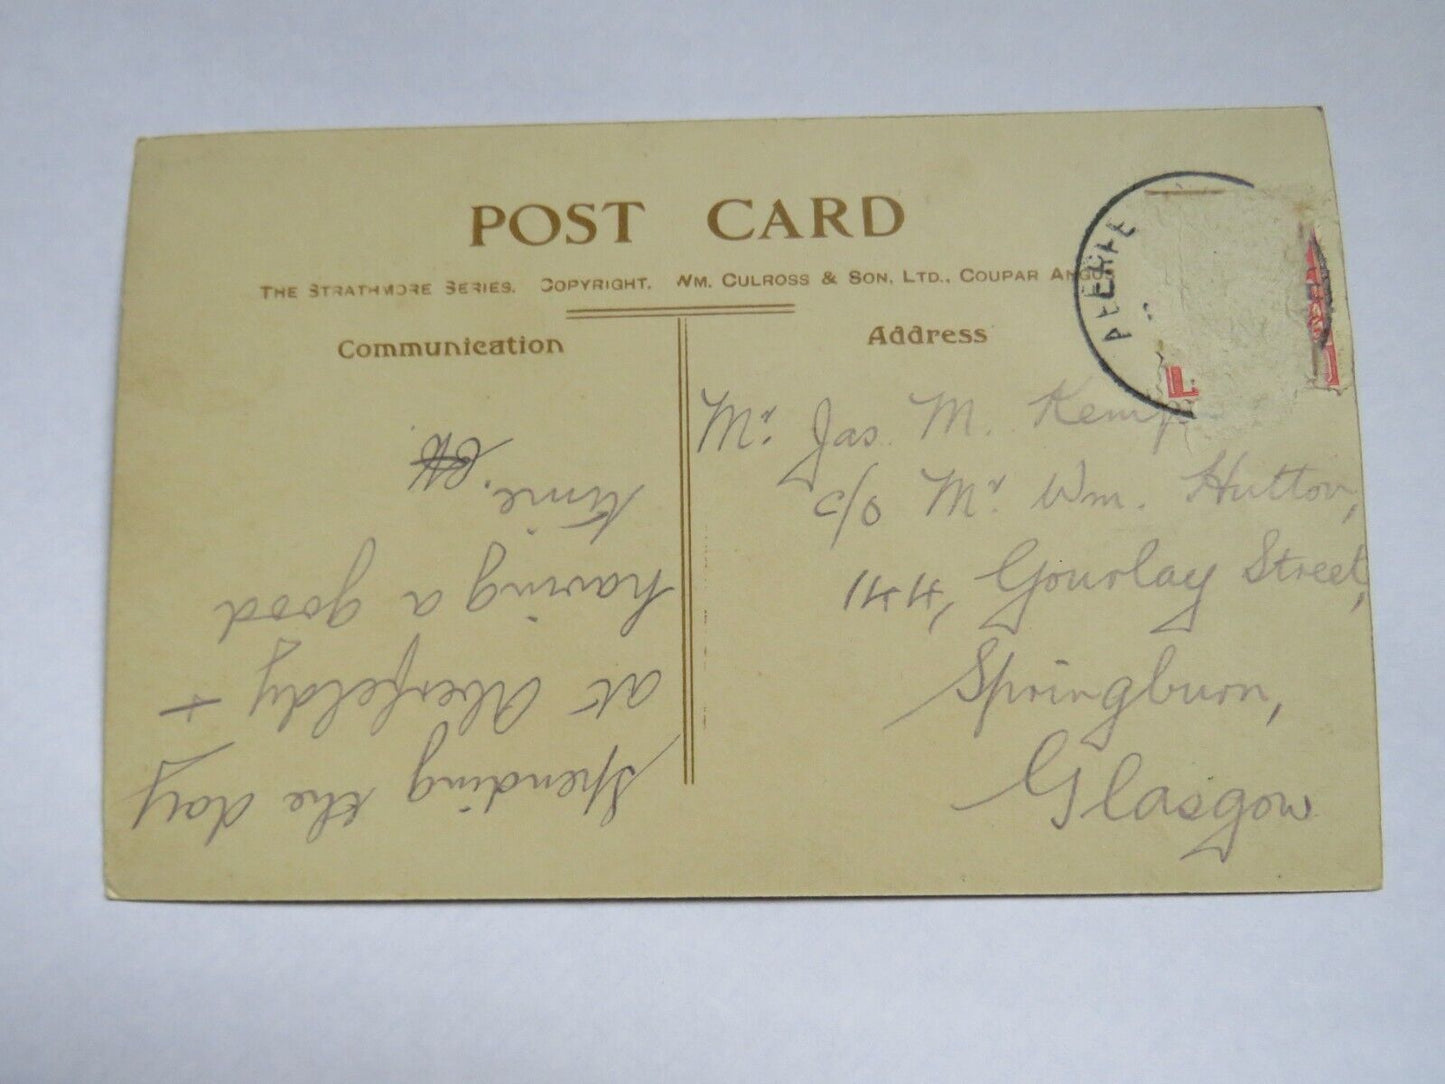 POST CARD
THE STRATHMORE SERIES. COPYRIGHT. WM. CULROSS & SON, LTD., COUPAR ANGUS
Communication
Address
ABERFE
Spending the day
at Aberfeldy +
having a good
time.
Mr. Jas. M. Kemp
c/o Mr. Wm. Hutton,
144, Gourlay Street,
Springburn,
Glasgow